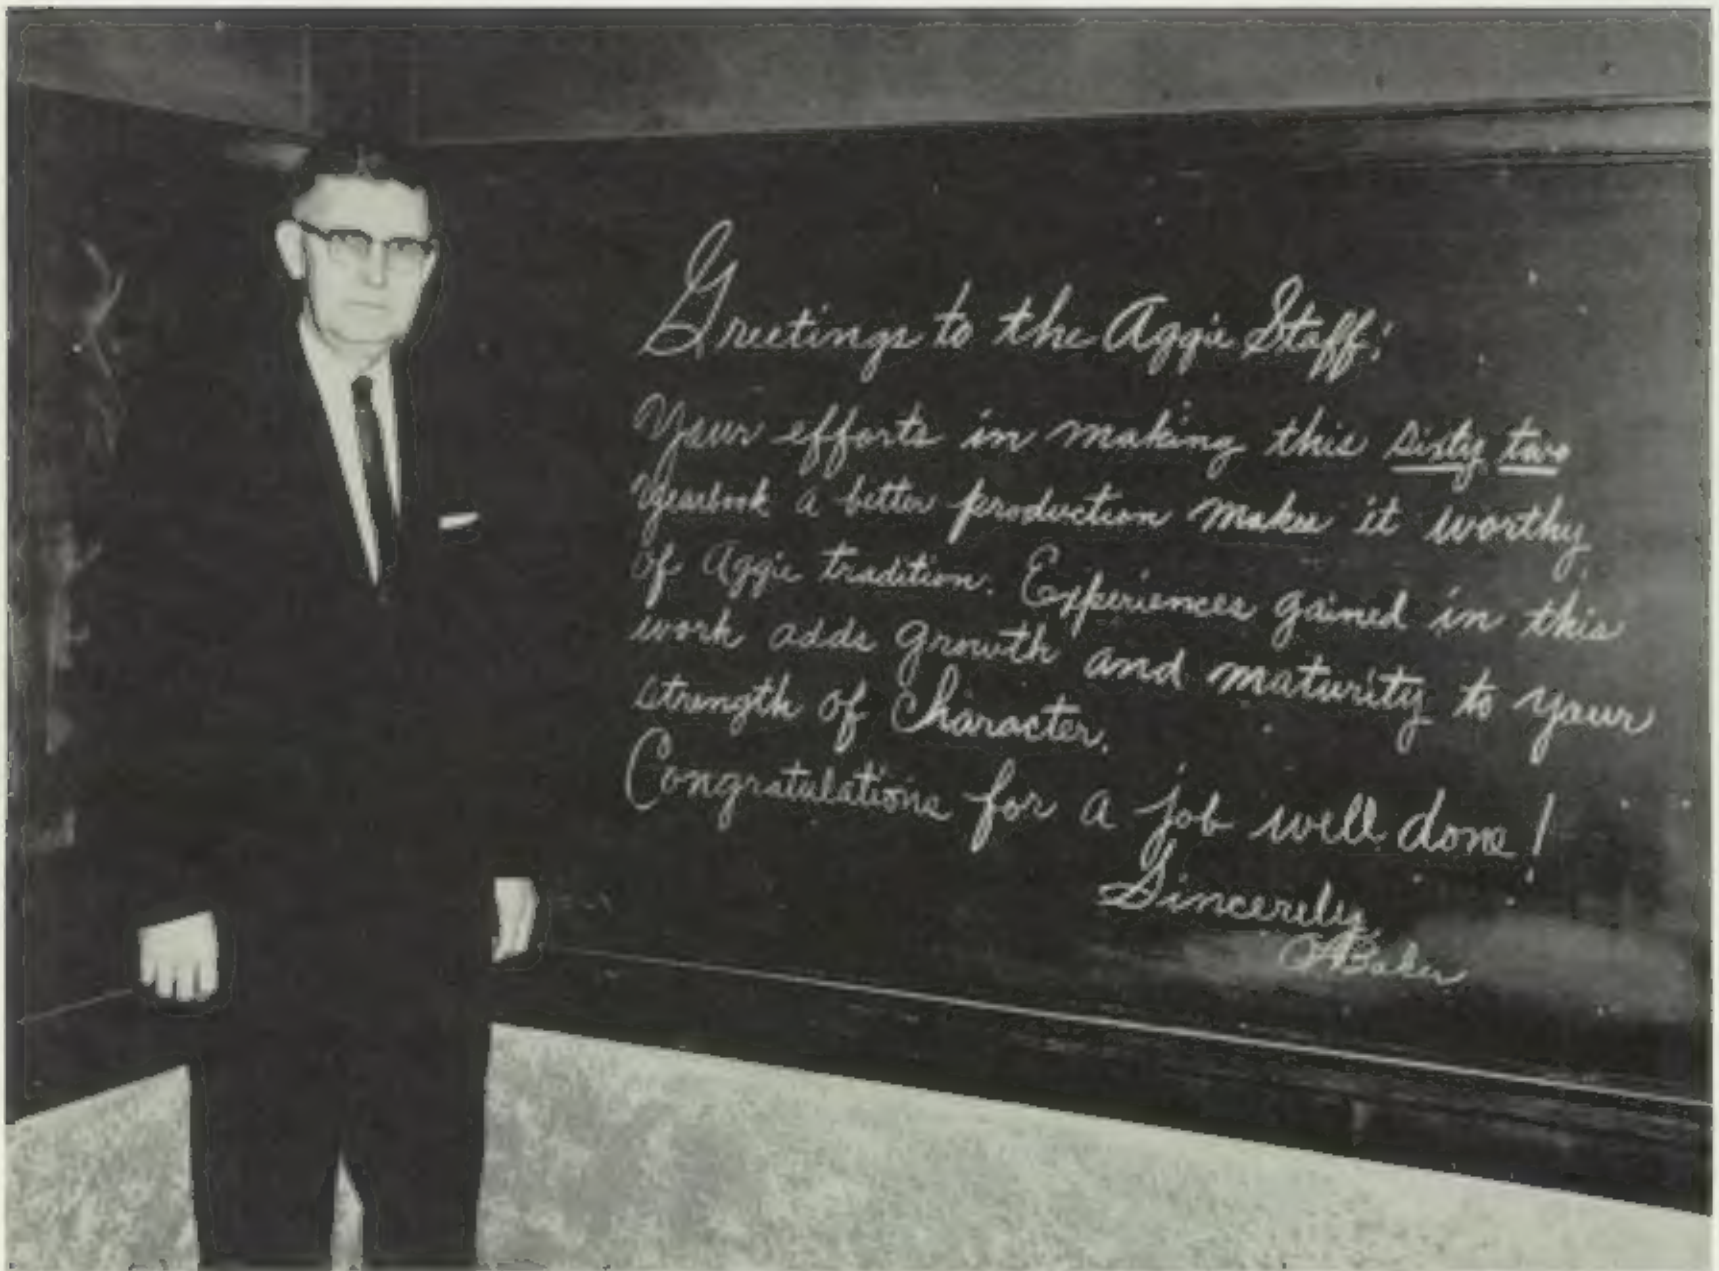 Greetings to the Aggie Staff:
Your efforts in making this sixty two
Yearbook a better production makes it worthy
of Aggie tradition. Experiences gained in this
work adds growth and maturity to your
strength of Character.
Congratulations for a job well done!
Sincerely
Baker